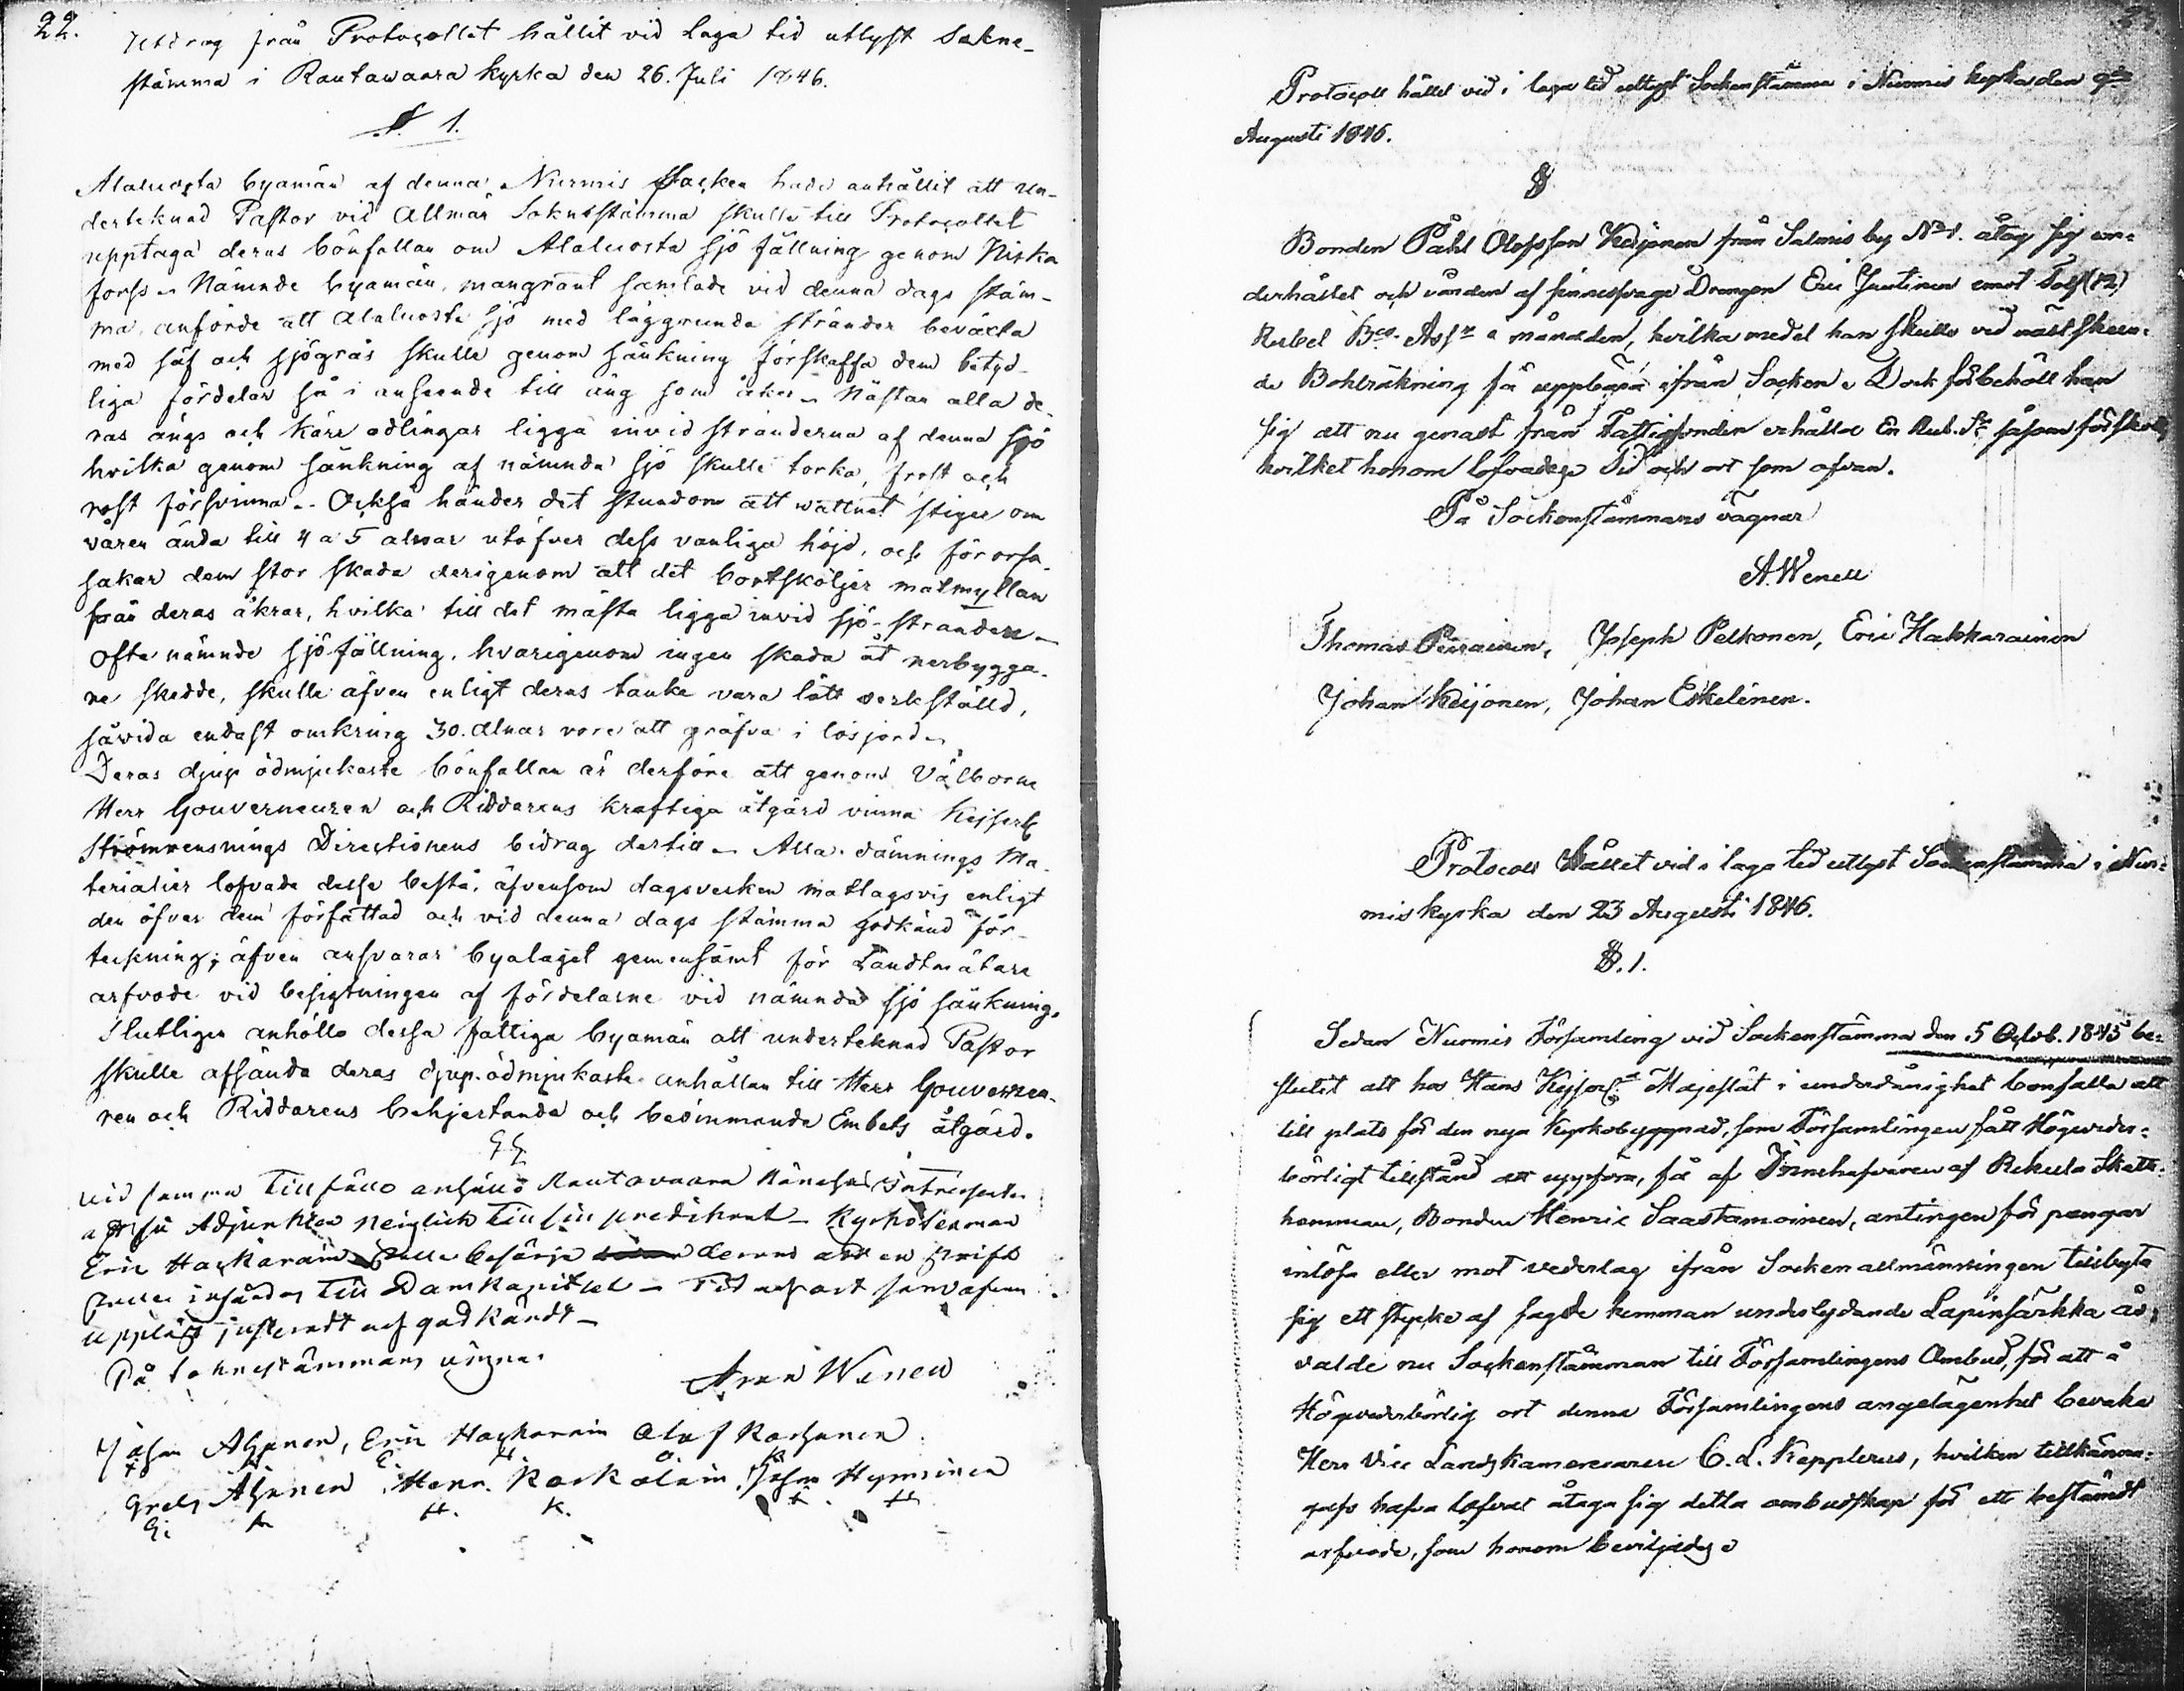 22.
Utdrag från Protocollet hållit vid laga tid utlyst Sokne-
stämma i Rautawaara kyrka den 26. Juli 1846.
§ 1.
Alaluosta byamän af denna Nurmis Socken hade anhållit att un-
derteknad Pastor vid Allmän Soknestämma skulle till Protocollet
upptaga deras bönfallan om Alaluosta sjö fällning genom Niska
forss. Nämnde byamän, mangrant samlade vid denna dags stäm-
ma, anförde att Alaluosta sjö med låggrunda stränder beväxta
med säf och sjögräs skulle genom sänkning förskaffa dem betyd-
liga fördelar så i anseende till äng som åker. Nästan alla de-
ras ängs och kärr odlingar ligga invid stränderna af denna sjö
hvilka genom sänkning af nämnda sjö skulle torka, frost och
rost försvinna. Också händer det stundom att wattnet stiger om
våren ända till 4 a 5 alnar utöfver dess vanliga höjd, och förorsa-
sakar dem stor skada derigenom att det bortsköljer matmyllan
från deras åkrar, hvilka till det mästa ligga invid sjö-stranden.
Ofta nämnde sjöfällning, hvarigenom ingen skada åt nerbygga-
ne skedde, skulle äfven enligt deras tanke vara lätt verkställd,
såvida endast omkring 30. alnar vore att gräfva i lösjord.
Deras djup ödmjukaste bönfallan är derföre att genom Välborne
Herr Gouverneuren och Riddarens kraftiga åtgärd vinna Kejserl
Strömrensnings Directionens bidrag dertill. Alla dämnings Ma-
terialier lofvade desse bestå, äfvensom dagsverken matlagsvis enligt
den öfver dem författad och vid denna dags stämma godkänd för-
teckning; äfven ansvarar byalaget gemensamt för Landtmätare
arfvode vid besigtningen af fördelarne vid nämnda sjö sänkning.
Slutligen anhöllo dessa fattiga byamän att underteknad Pastor
skulle afsända deras djup ödmjukaste anhållan till Herr Gouverneu-
ren och Riddarens behjertande och bedömmande Embets åtgärd.
§§
Vid samma tillfälle anhöllo Rautavaara
att få Adjunkten Neiglick till sin predikant. Kyrkovärden
Eric Hackarain skulle besörja denna att en skrift
skulle insändas till Domkapitlet. Tid och ort som ofvan
uppläst justeradt och godkändt.
På Soknestämmans vägnar
Aron Wenell
Johan Ahonen, Eric Hackarain Olof Korhonen
Grels Ahonen Henr. Koskolain Johan Hyminen
G. A. H. K.
Protocoll hållet vid i laga tid utlyst Sockenstämma i Nurmis kyrka den 9de
Augusti 1846.
§
Bonden Påhl Olofsson Keijonen från Salmis by No 1. åtog sig un-
derhållet och vården af sinnessvage Drängen Eric Juutinen emot Tolf (12)
Rubel Bco Assr i månaden, hvilka medel han skulle vid näst skeen-
de Bohlräkning få uppbära ifrån Socken. Dock förbehöll han
sig att nu genast från Fattigfonden erhålla En Rub. Sr såsom förskott,
hvilket honom lofvades. Tid och ort som ofvan.
På Sockenstämmans vägnar
A. Wenell
Thomas Piirainen, Joseph Pelkonen, Eric Hakkarainen
Johan Keijonen, Johan Eskelinen.
Protocoll hållet vid i laga tid utlyst Sockenstämma i Nur-
mis kyrka den 23 Augusti 1846.
§. 1.
Sedan Nurmis Församling vid Sockenstämma den 5 Octob. 1845 be-
slutit att hos Hans Kejserl. Majestät i underdånighet bönfalla att
till plats för den nya kyrkobyggnad, som Församlingen fått Högveder-
börligt tillstånd att uppföra, få af Innehafvaren af Rekula Skatte-
hemman, Bonden Henric Saastamoinen, antingen för pengar
inlösa eller mot vederlag ifrån Sockenallmänningen tillbyta
sig ett stycke af sagde hemman underlydande Lapinsärkkä ås,
valde nu Sockenstämman till Församlingens Ombud, för att å
Högvederbörlig ort denna Församlingens angelägenhet bevaka
Herr Vice Landskamereraren C. L. Kepplerus, hvilken tillkänna-
gafs hafva lofvat åtaga sig detta ombudskap för ett bestämdt
arfvode, som honom beviljades